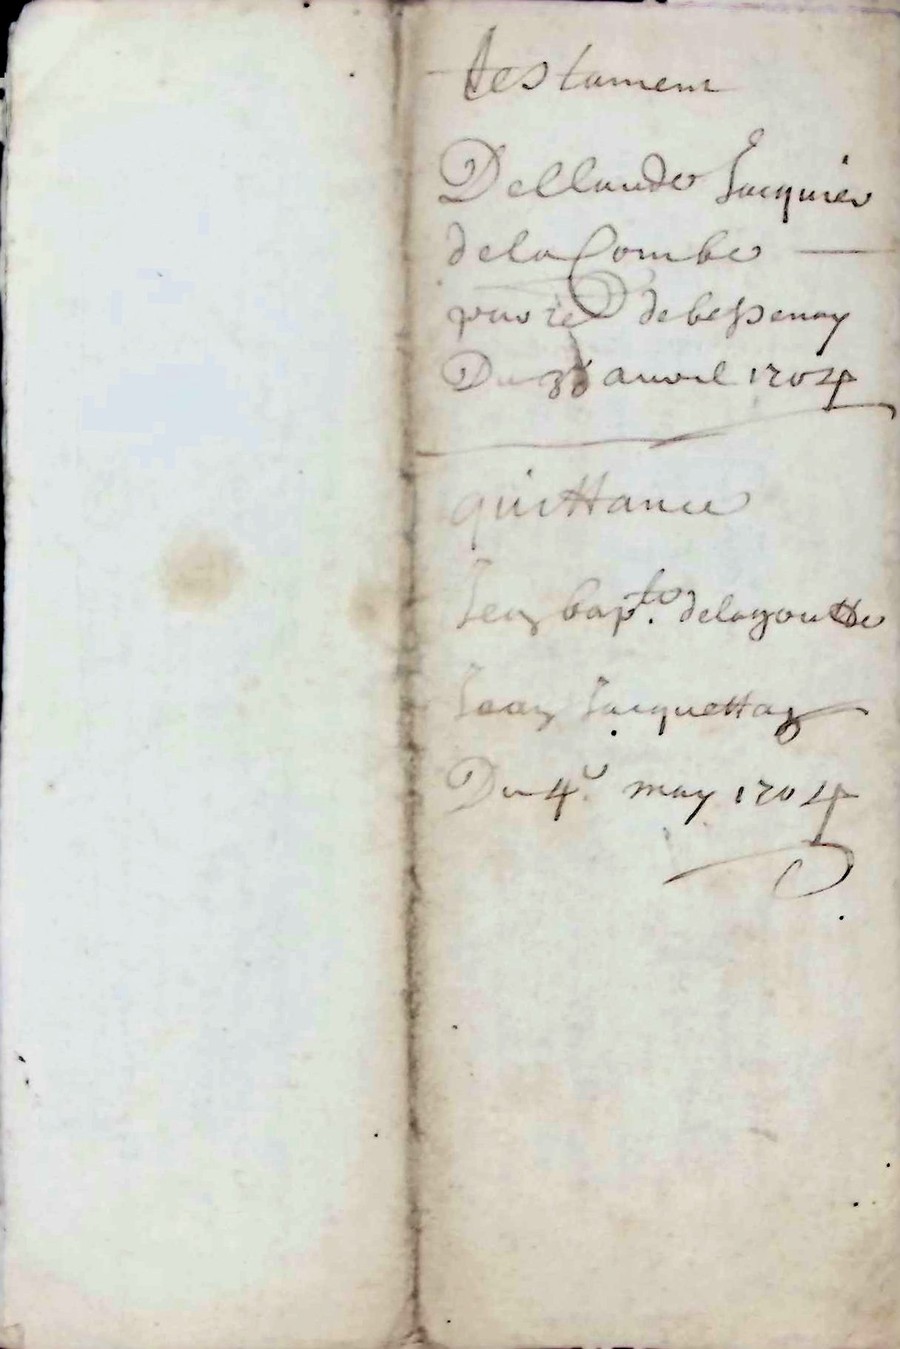 testament
Jacquier
dela Combe
de bessenay
Du avril 1704
quittance
Jean bapte. delagoutte
Jean Jacquettan
Du 4e. may 1704